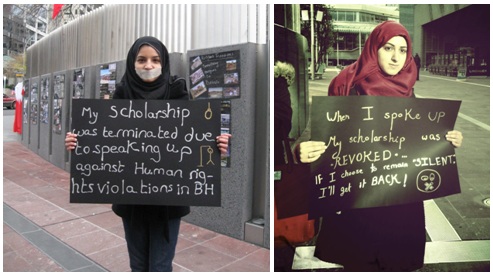 My Scholarship
was terminated due
to speaking up
against Human rig-
hts violations in B'H
When I spoke up
My scholarship was
"REVOKED"...
IF I choose to remain "SILENT"
I'll get it BACK!